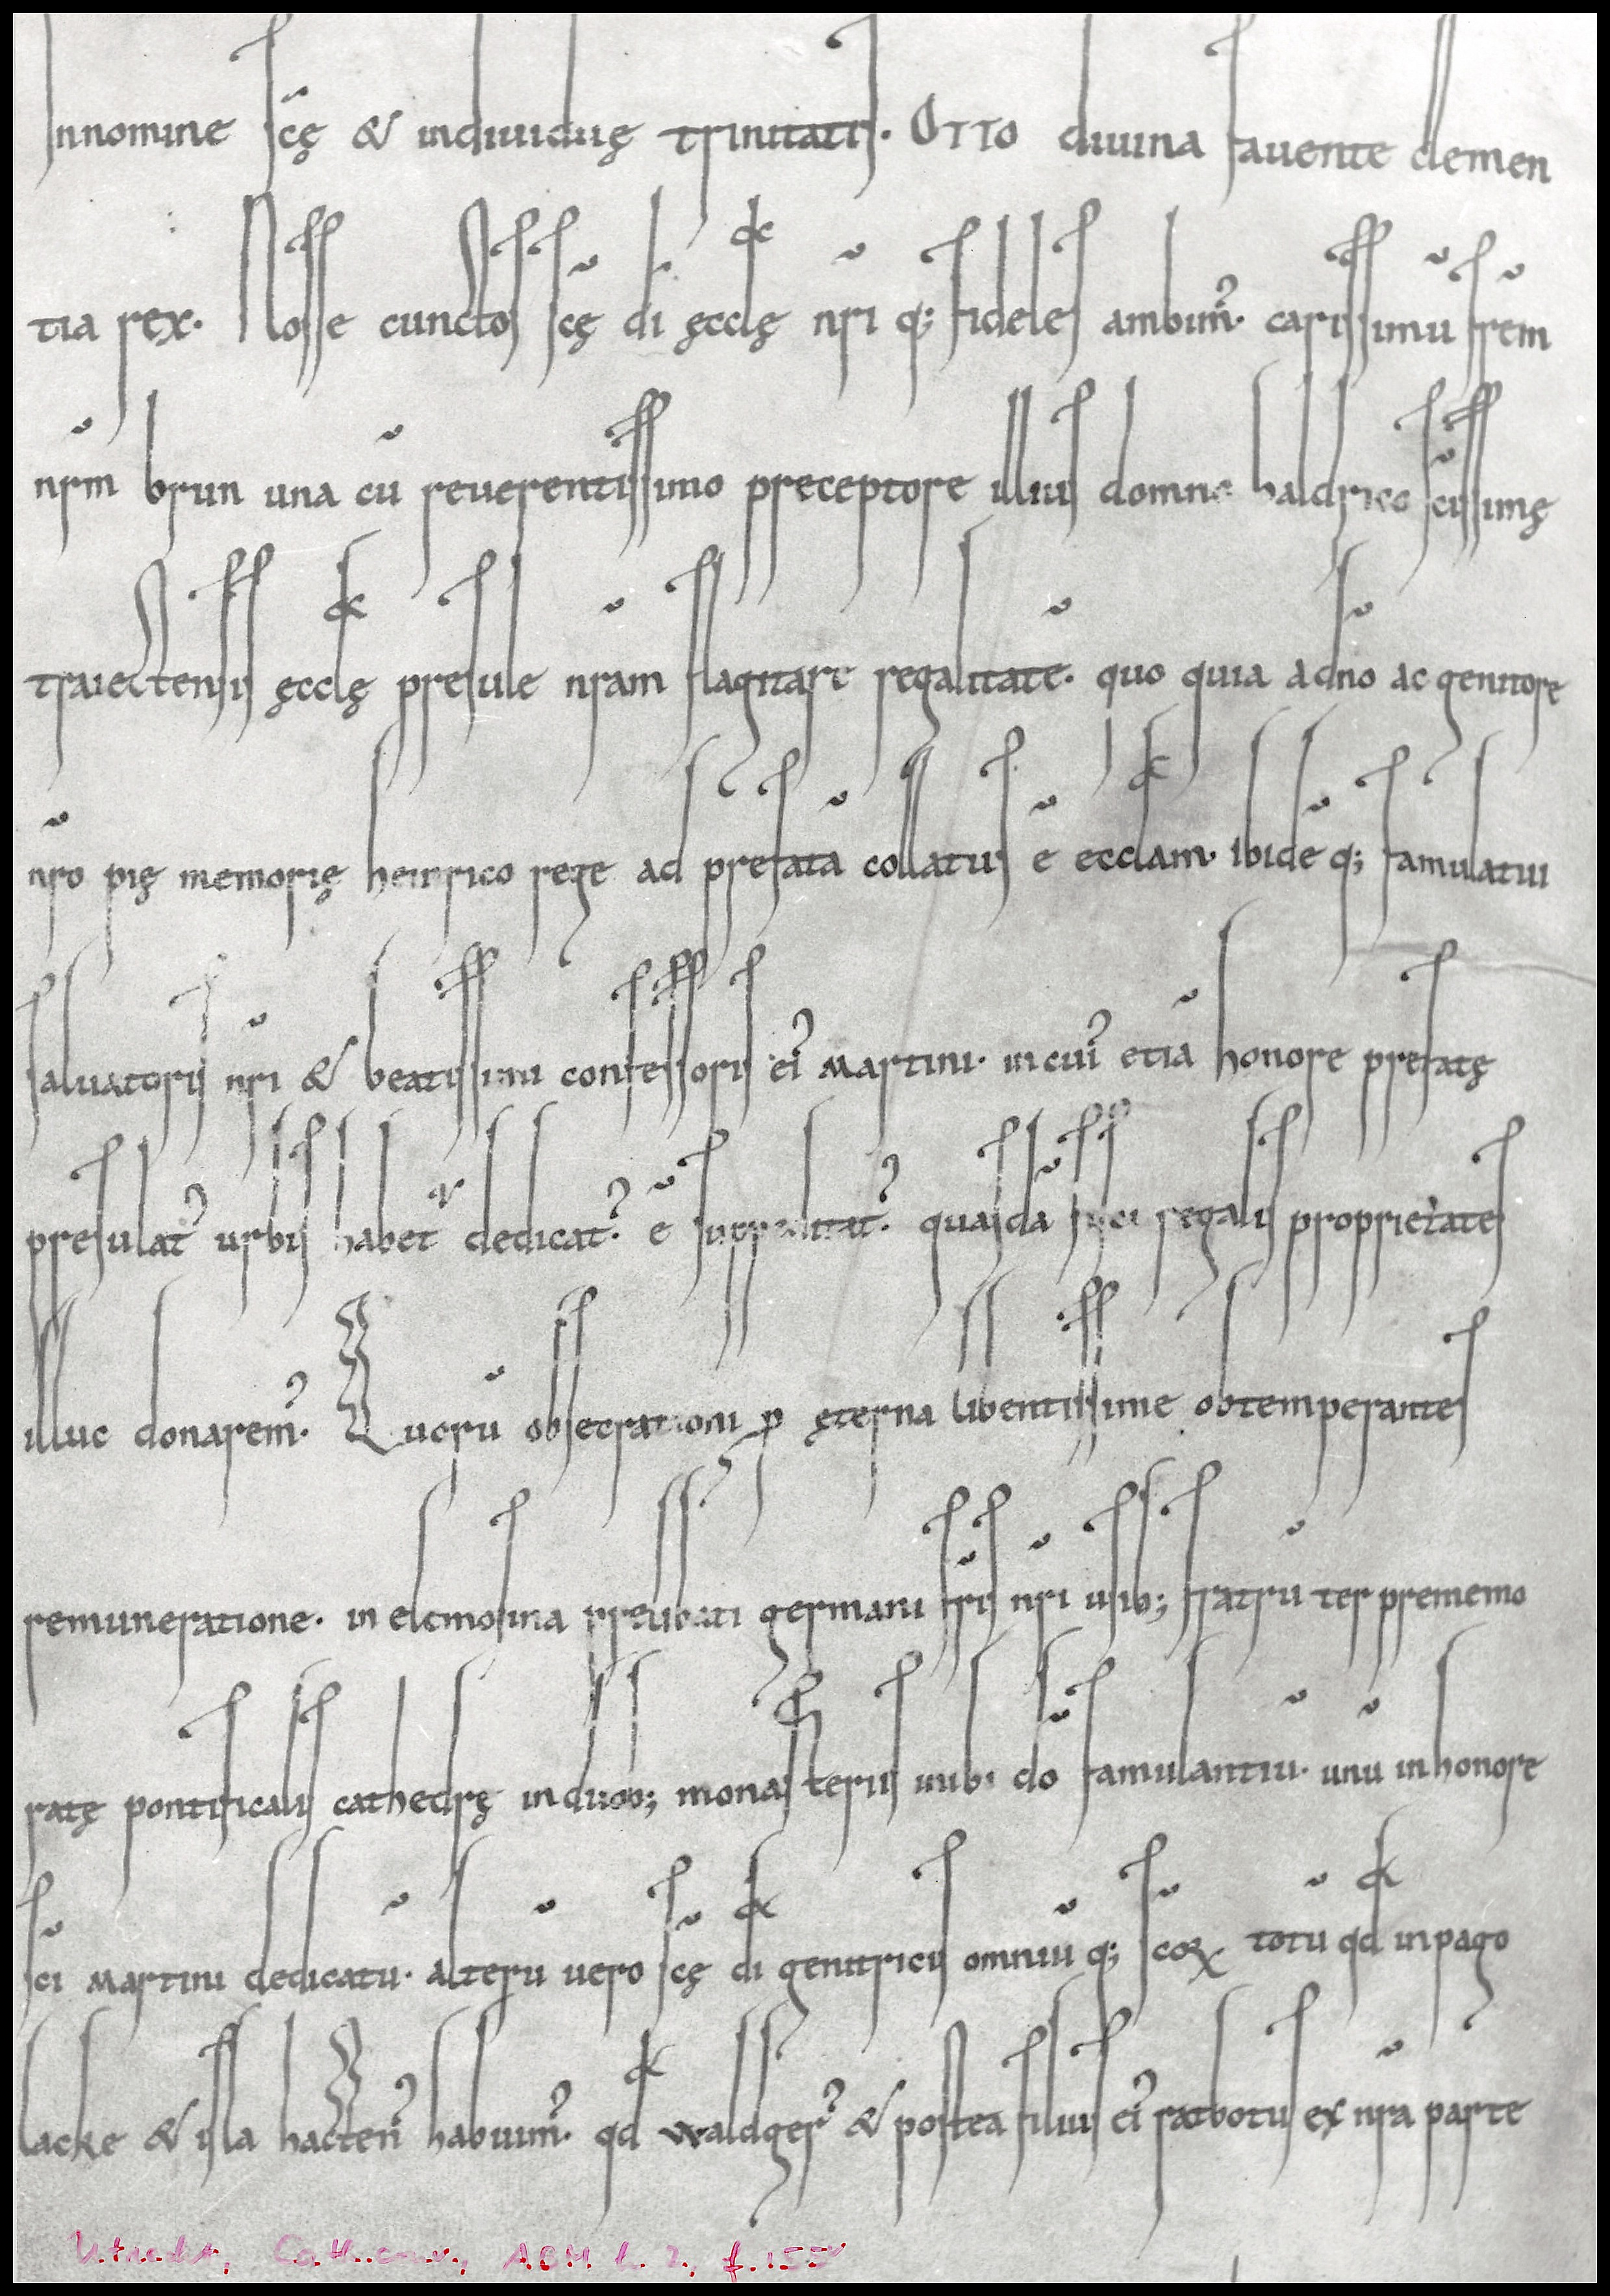 Innomine scę & indiuiduę trinitatis. Otto diuina fauente clemen
tia rex. Nosse cunctos scę di ęcclę nri q; fideles ambim᾽. carissimu frem
nrm brun una cu reuerentissimo preceptore illius domno baldrico scissimę
traiectensis ęcclę presule nram flagitare regalitate. quo quia adno ac genitore
nro pię memorię heinrico rege ad prefata collatus e ecclam. ibide q; famulatui
saluatoris nri & beatissimi confessoris ei᾽ martini. in cui᾽ etia honore prefatę
presulat᾽ urbis habet dedicat᾽. e suppeditat᾽. quasda iuri regalis proprietates
illuc donarem᾽. Quoru obsecrationi p ęterna libentissime obtemperantes
remuneratione. in elemosina prelibati germani fris nri usib; fratru ter prememo
ratę pontificalis cathedrę in duob; monasteriis inibi do famulantiu. unu inhonore
sci martini dedicatu. alteru uero scę di genitricis omniu q; scoꝝ totu qd inpago
lacke & isla hacten᾽ habuim᾽. qd waldger᾽ & postea filius ei᾽ ratbotus ex nra parte
Utrecht, Cathar., ABM h. 2, f. 155v